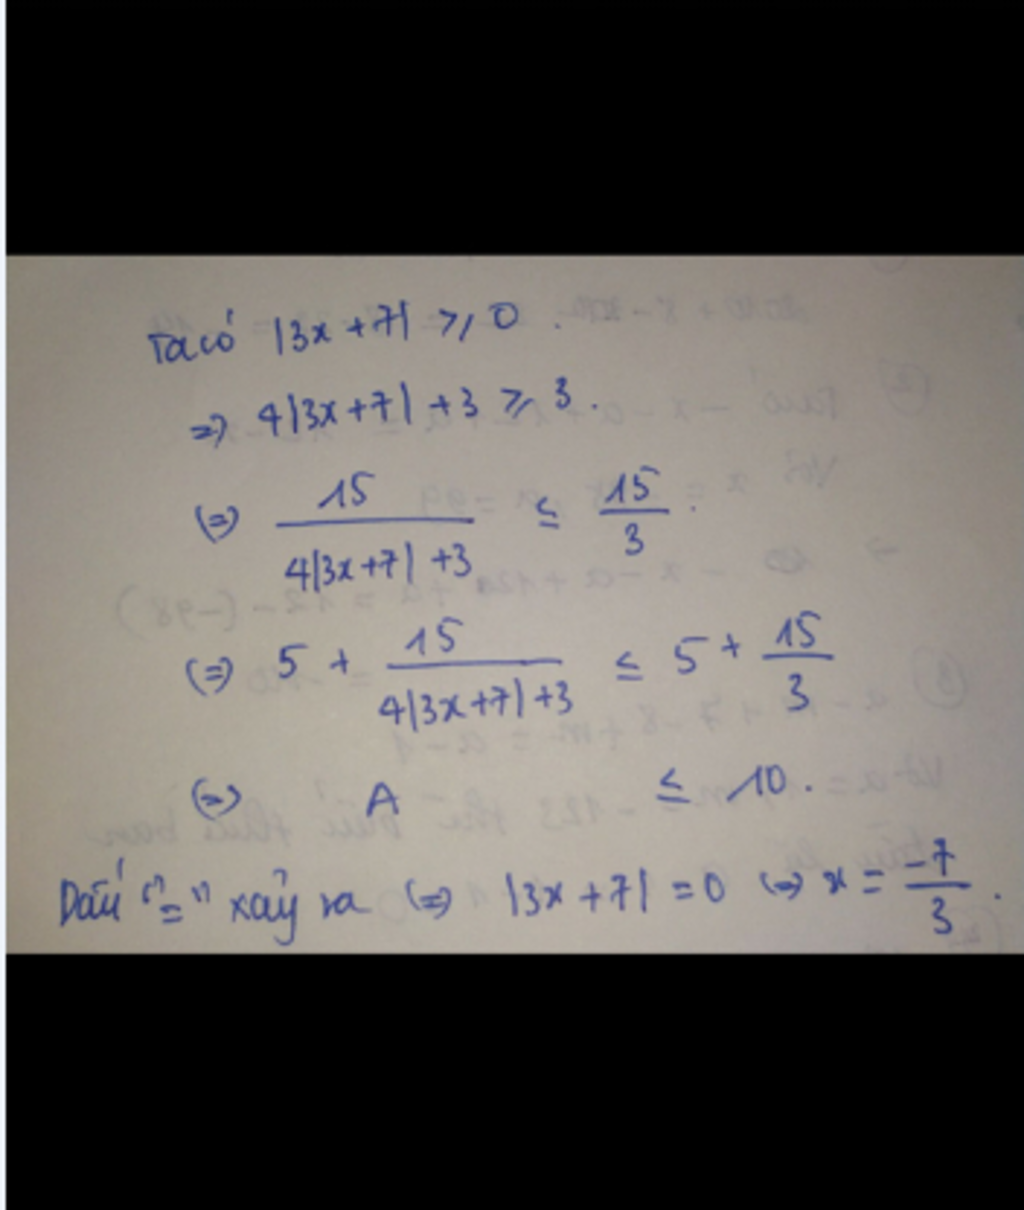 Ta có |3x+7| ≥ 0.
=> 4|3x+7| +3 ≥ 3.
(=) 15/(4|3x+7| +3) ≤ 15/3.
(=) 5 + 15/(4|3x+7| +3) ≤ 5 + 15/3
(=) A ≤ 10.
Dấu "=" xảy ra (=) |3x+7| = 0 (=) x = -7/3.